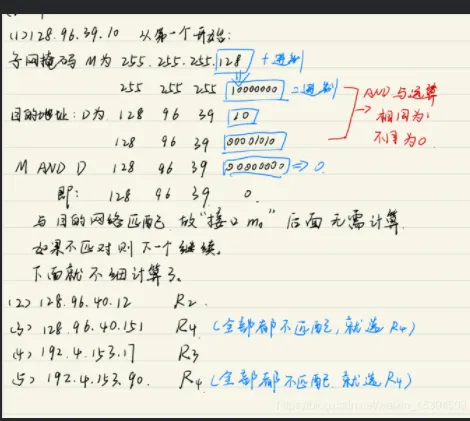 (1) 128.96.39.10 从第一个开始:
子网掩码 M为 255.255.255.128 十进制
255 255 255 10000000 二进制
目的地址: D为 128 96 39 10
128 96 39 00001010
M AND D 128 96 39 00000000 => 0
AND 与运算
相同为1
不同为0
即: 128 96 39 0.
与目的网络匹配, 故"接口 m0" 后面无需计算.
如果不匹对则下一个继续.
下面就不细计算了.
(2) 128.96.40.12 R2
(3) 128.96.40.151 R4 (全部都不匹配, 就选R4)
(4) 192.4.153.17 R3
(5) 192.4.153.90. R4 (全部都不匹配 就选R4)